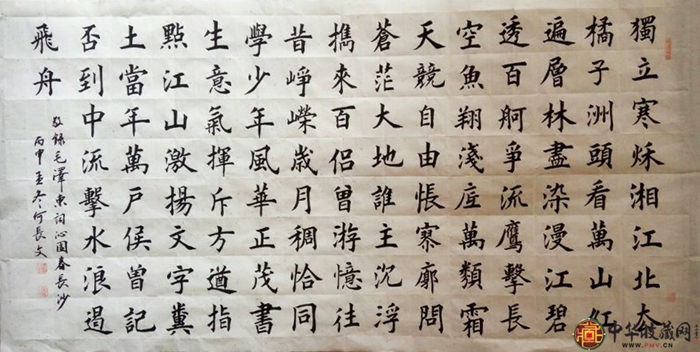 獨立寒秌湘江北去
橘子洲頭看萬山紅
遍層林盡染漫江碧
透百舸爭流鷹擊長
空魚翔淺底萬類霜
天競自由悵寥廓問
蒼茫大地誰主沉浮
攜來百侶曾游憶往
昔崢嶸歲月稠恰同
學少年風華正茂書
生意氣揮斥方遒指
點江山激揚文字糞
土當年萬戶侯曾記
否到中流擊水浪遏
飛舟
敬録毛澤東詞沁园春長沙
丙申孟冬何長文
中华收藏网
WWW.PMV.CN